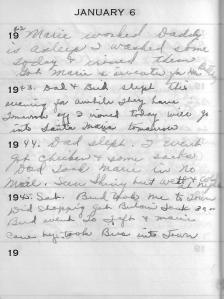 JANUARY 6
1942 Marie worked Daddy
is asleep I washed some
today & ironed them
Got Marie a sweater for
1943. Dad & Bud slept the
evening for awhile they have
tomorrow off I ironed today will go
into Santa Maria tomorrow
1944. Dad slept. I went
get chicken & some sacks
Dad took Marie in no
mail. Sun Shiny but &
1945. Sat. Bud took me to Town
Did shopping got Butane Tank
Bud went to & Marie
came by took Bus into Town
19